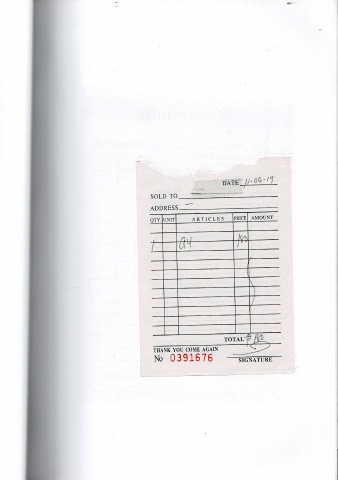 DATE 11-04-19
SOLD TO
ADDRESS —
QTY UNIT ARTICLES PRICE AMOUNT
1 A4 180
TOTAL 180
THANK YOU COME AGAIN
No 0391676 SIGNATURE